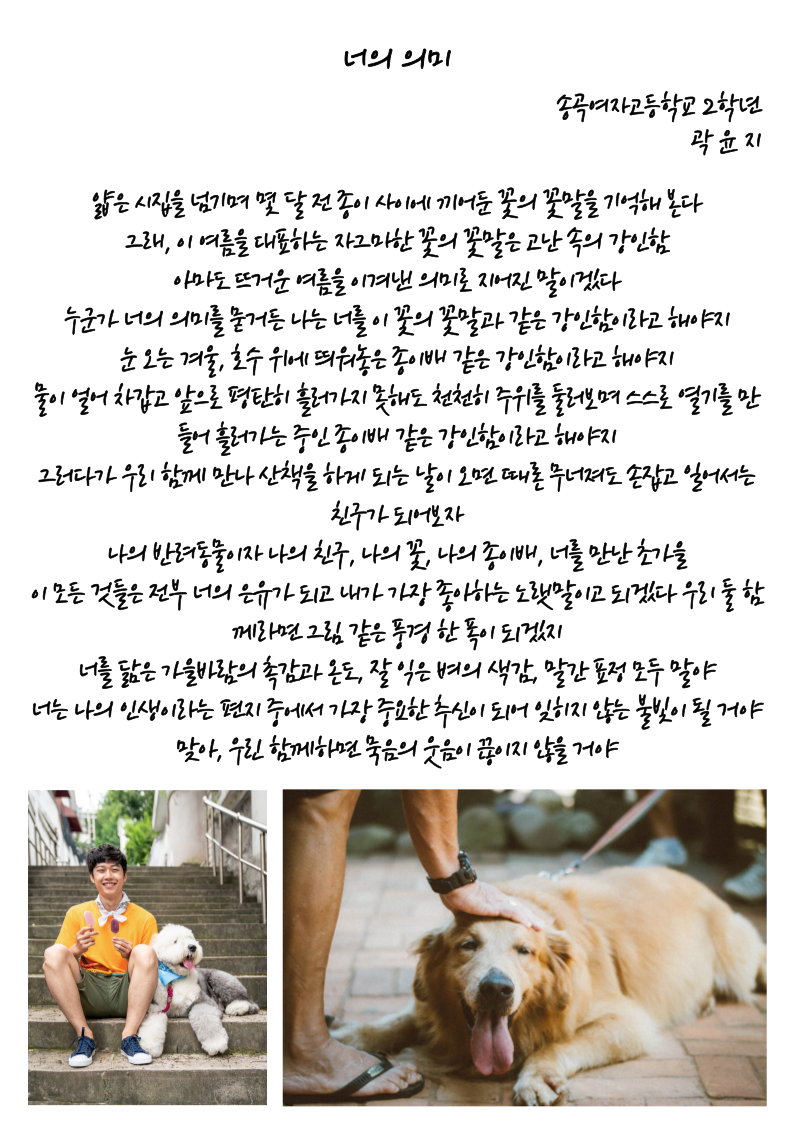 너의 의미
송곡여자고등학교 2학년
곽 윤 지
얇은 시집을 넘기며 몇 달 전 종이 사이에 끼어둔 꽃의 꽃말을 기억해 본다
그래, 이 여름을 대표하는 자그마한 꽃의 꽃말은 고난 속의 강인함
아마도 뜨거운 여름을 이겨낸 의미로 지어진 말이겠다
누군가 너의 의미를 묻거든 나는 너를 이 꽃의 꽃말과 같은 강인함이라고 해야지
눈 오는 겨울, 호수 위에 띄워놓은 종이배 같은 강인함이라고 해야지
물이 얼어 차갑고 앞으로 평탄히 흘러가지 못해도 천천히 주위를 둘러보며 스스로 열기를 만
들어 흘러가는 중인 종이배 같은 강인함이라고 해야지
그러다가 우리 함께 만나 산책을 하게 되는 날이 오면 때론 무너져도 손잡고 일어서는
친구가 되어보자
나의 반려동물이자 나의 친구, 나의 꽃, 나의 종이배, 너를 만난 초가을
이 모든 것들은 전부 너의 은유가 되고 내가 가장 좋아하는 노랫말이고 되겠다 우리 둘 함
께라면 그림 같은 풍경 한 폭이 되겠지
너를 닮은 가을바람의 촉감과 온도, 잘 익은 벼의 색감, 말간 표정 모두 말야
너는 나의 인생이라는 편지 중에서 가장 중요한 추신이 되어 잊히지 않는 불빛이 될 거야
맞아, 우린 함께하면 묵음의 웃음이 끊이지 않을 거야